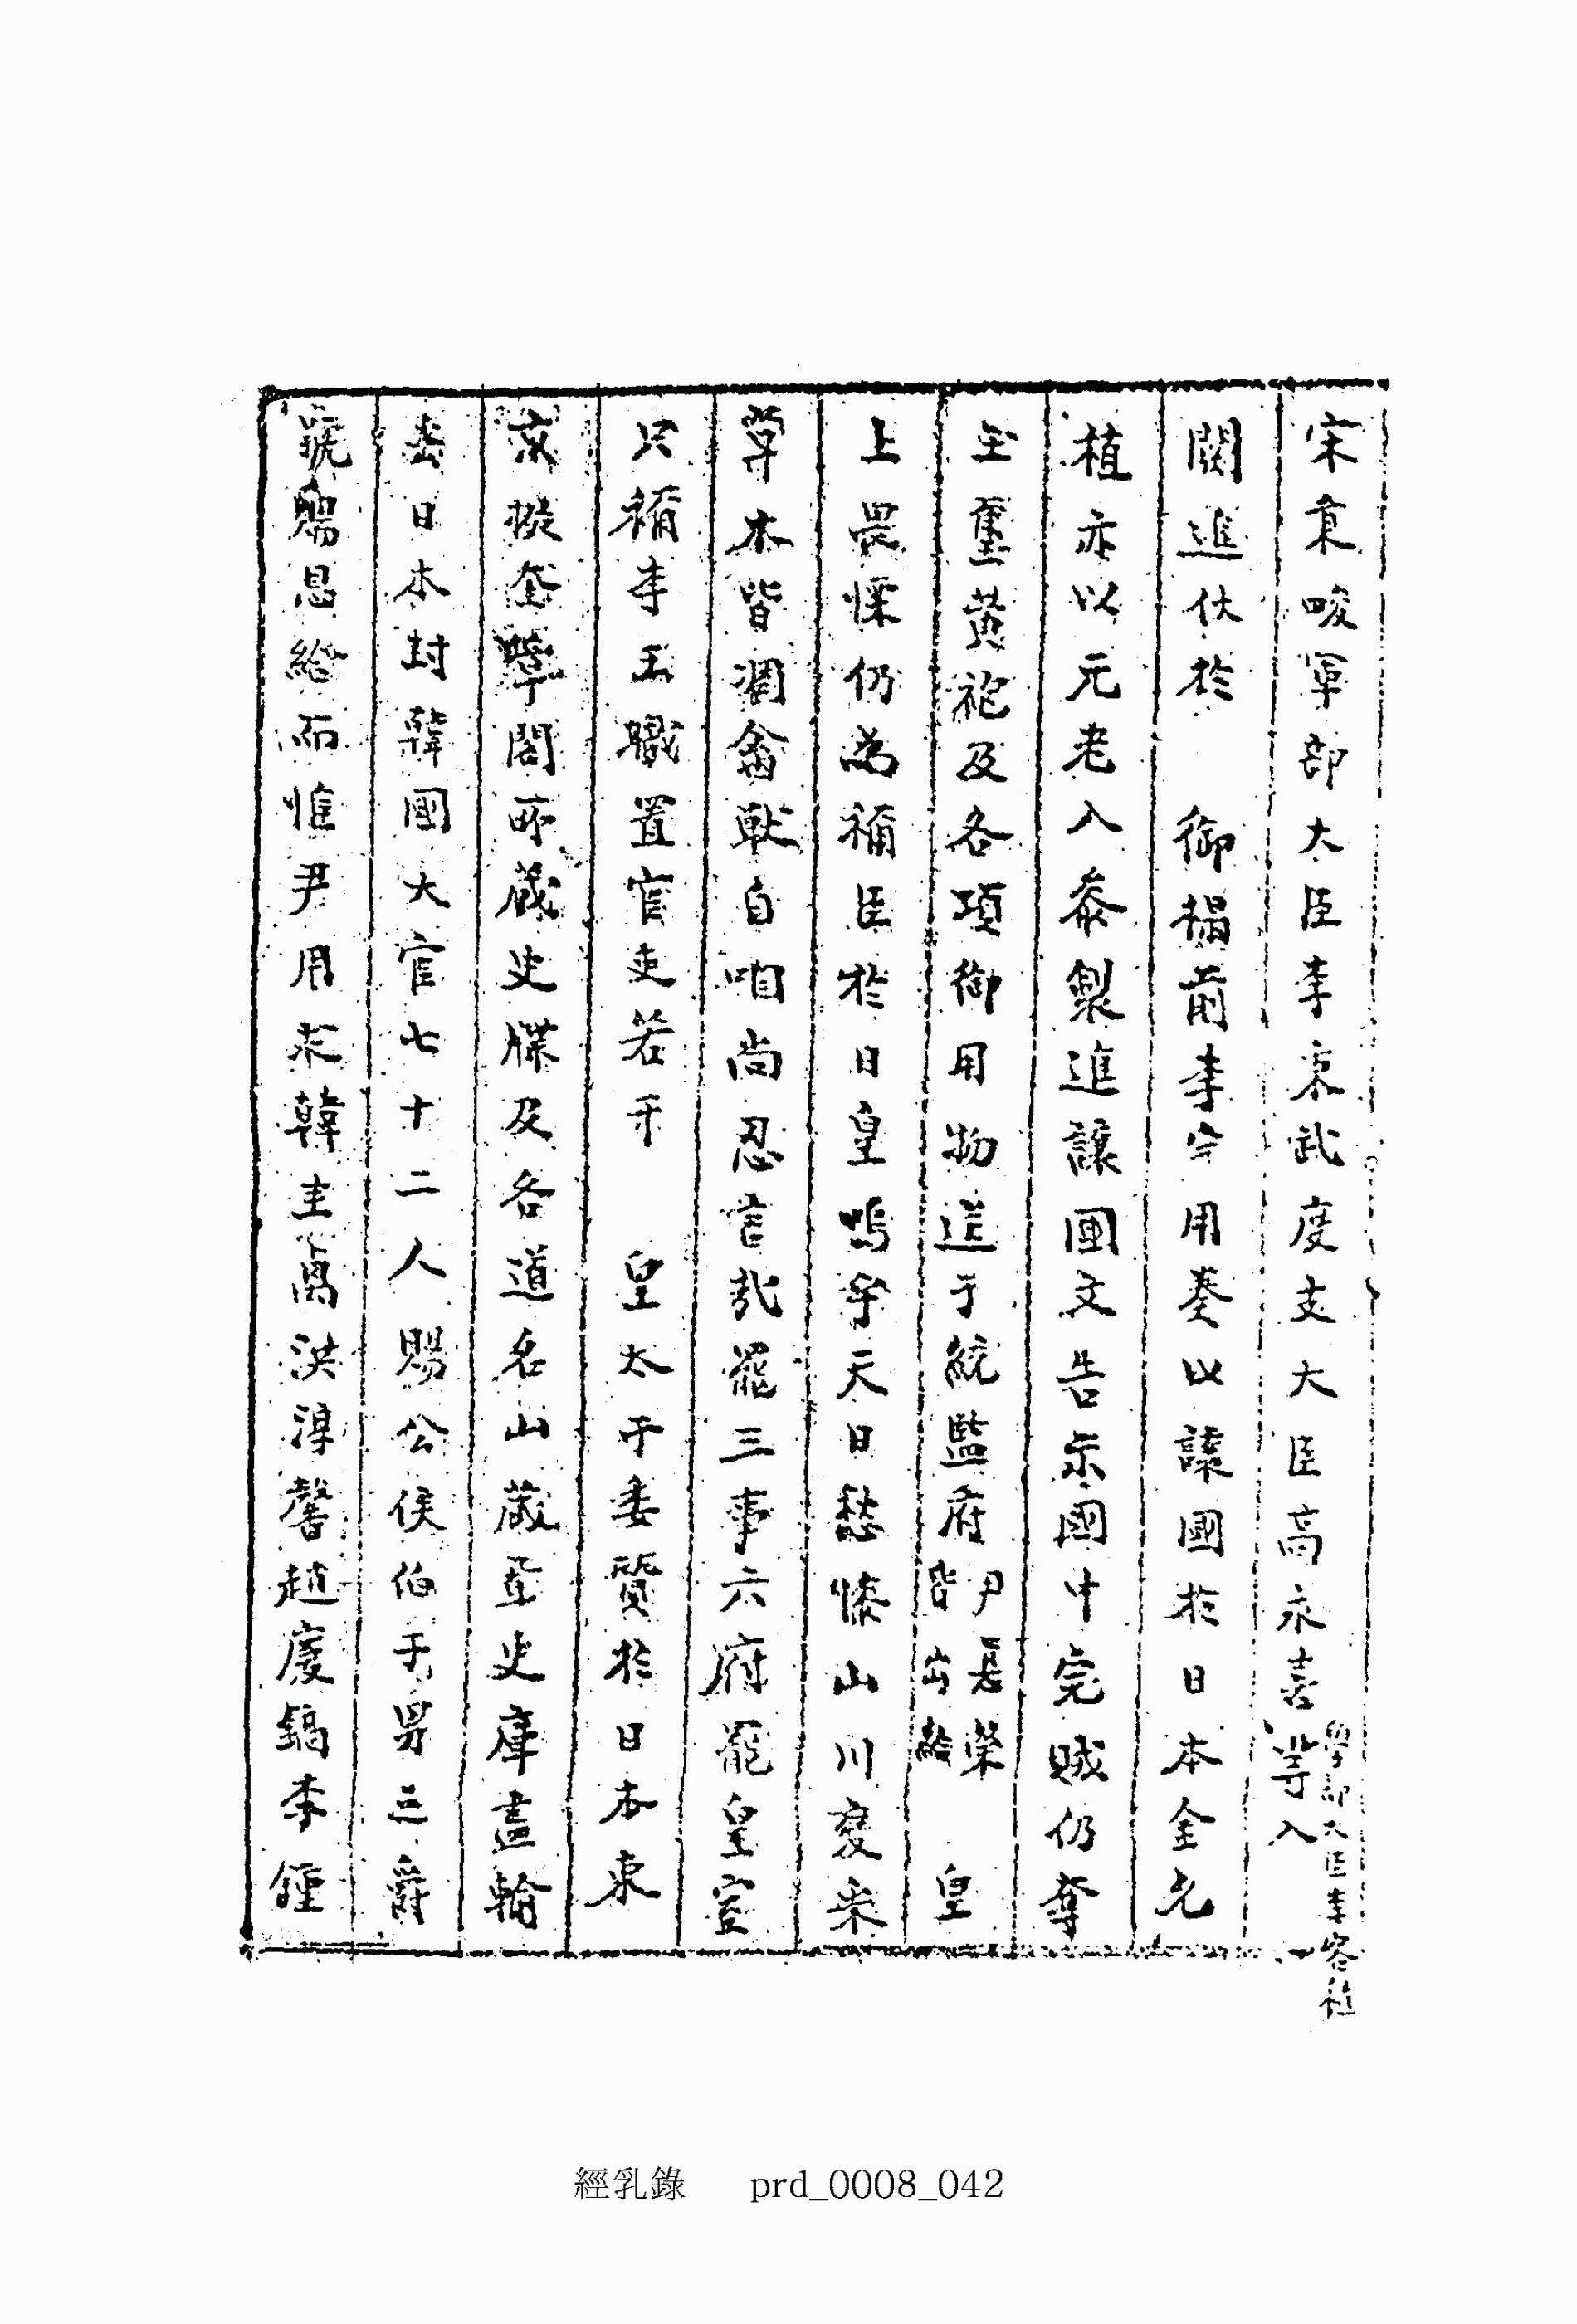 宋秉畯軍部大臣李秉武度支大臣高永喜學部大臣李容稙等入
闕進伏於 御榻前李完用奏以讓國於日本金允
植亦以元老入參製進讓國文告示國中完賊仍奪
玉璽黃袍及各項御用物送于統監府尹長榮皆與 皇
上畏慄仍爲稱臣於日皇嗚乎天日愁慘山川變采
草木皆凋禽獸自咽尚忍言哉罷三事六府罷皇室
只稱李王職置官吏若干 皇太子委質於日本東
京撥奎章閣所藏史牒及各道名山藏至史庫盡輸
去日本封韓國大官七十二人賜公侯伯子男三爵
號賜恩給而惟尹用求韓圭卨洪淳馨趙慶鎬李鍾
經乳錄 prd_0008_042